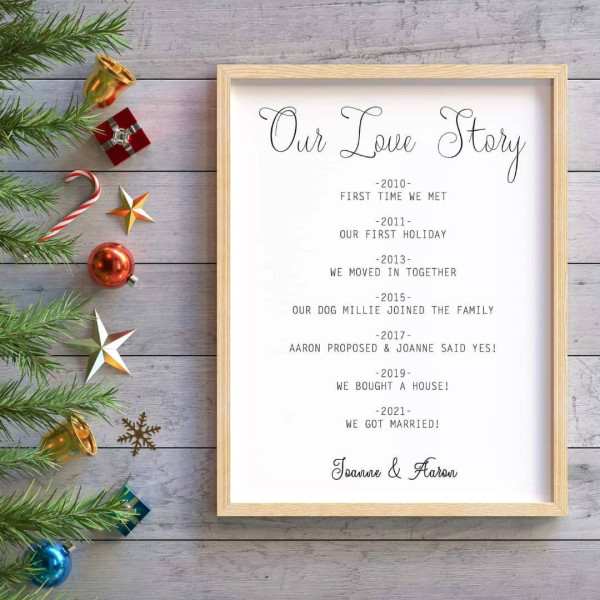 Our Love Story
-2010-
FIRST TIME WE MET
-2011-
OUR FIRST HOLIDAY
-2013-
WE MOVED IN TOGETHER
-2015-
OUR DOG MILLIE JOINED THE FAMILY
-2017-
AARON PROPOSED & JOANNE SAID YES!
-2019-
WE BOUGHT A HOUSE!
-2021-
WE GOT MARRIED!
Joanne & Aaron